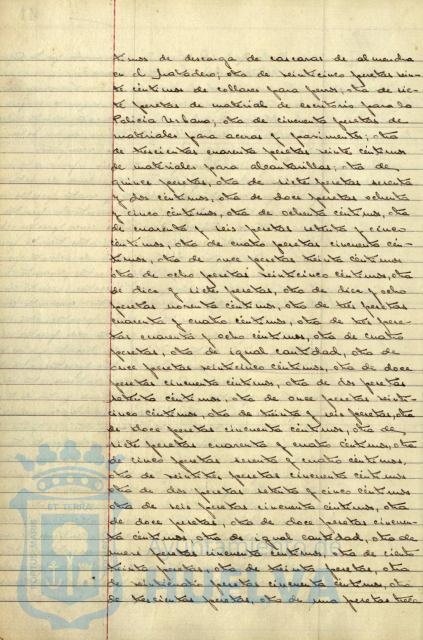 timos de descarga de cascaras de almendra
en el Matadero; otra de veinticinco pesetas vein-
te céntimos de collares para perros; otra de sie-
te pesetas de material de escritorio para la
Policía Urbana; otra de cincuenta pesetas de
materiales para aceras y pavimentos; otra
de trescientas cuarenta pesetas veinte céntimos
de materiales para alcantarillas; otra de
quince pesetas, otra de siete pesetas sesenta
y dos céntimos, otra de doce pesetas ochenta
y cinco céntimos, otra de ochenta céntimos, otra
de cuarenta y seis pesetas setenta y cinco
céntimos, otra de cuatro pesetas cincuenta cén-
timos, otra de once pesetas treinta céntimos
otra de ocho pesetas veinticinco céntimos, otra
de diez y siete pesetas, otra de diez y ocho
pesetas noventa céntimos, otra de tres pesetas
cuarenta y cuatro céntimos, otra de tres pese-
tas cuarenta y ocho céntimos, otra de cuatro
pesetas, otra de igual cantidad, otra de
once pesetas veinticinco céntimos, otra de doce
pesetas cincuenta céntimos, otra de dos pesetas
setenta céntimos, otra de once pesetas veinti-
cinco céntimos, otra de treinta y seis pesetas, otra
de doce pesetas cincuenta céntimos, otra de
siete pesetas cuarenta y cuatro céntimos, otra
de cinco pesetas sesenta y cuatro céntimos,
otra de veintitrés pesetas cincuenta céntimos
otra de dos pesetas setenta y cinco céntimos
otra de seis pesetas cincuenta céntimos, otra
de doce pesetas, otra de doce pesetas cincuen-
ta céntimos, otra de igual cantidad, otra de
nueve pesetas cincuenta céntimos, otra de ciento
treinta pesetas, otra de treinta pesetas, otra
de veinticuatro pesetas cincuenta céntimos, otra
de trescientas pesetas, otra de una peseta trein